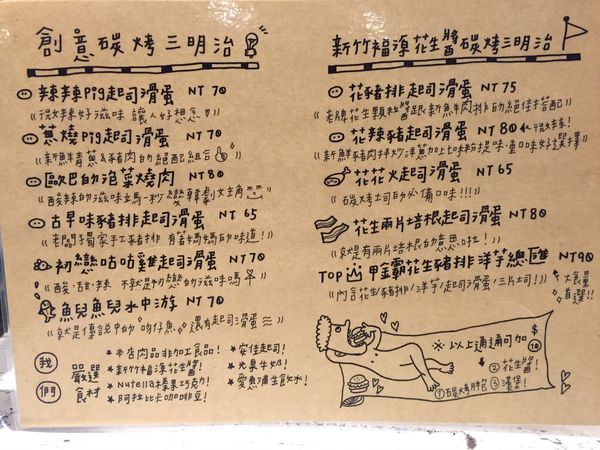 創意碳烤三明治
辣辣Pig起司滑蛋 NT 70
《很夠辣好滋味 讓人好想念》
蔥燒Pig起司滑蛋 NT 70
《新鮮青蔥&豬肉的絕配組合》
歐巴的泡菜燒肉 NT 80
《酸辣的滋味立馬一秒變韓劇女主角》
古早味豬排起司滑蛋 NT 65
《老闆子獨家手工豬排 有著媽媽的味道!》
初戀咕咕雞起司滑蛋 NT 70
《酸、甜、辣 不就是初戀的滋味嗎》
魚兒魚兒水中游 NT 70
《就是傳說中的吻仔魚 還有起司滑蛋》
我們
嚴選食材
*本店肉品非加工食品!
*新竹福源花生醬!
*Nutella榛果巧克力!
*阿拉比卡咖啡豆!
*安佳起司!
*光泉牛奶!
*愛惠浦生飲水!
新竹福源花生醬碳烤三明治
花豬排起司滑蛋 NT 75
《老牌花生顆粒醬跟新鮮豬肉排的絕佳搭配》
花辣豬起司滑蛋 NT 80 很夠辣!
《新鮮豬肉拌炒洋蔥加上七味粉提味,重口味好選擇》
花花火起司滑蛋 NT 65
《碳烤吐司的必備口味!!!》
花生兩片培根起司滑蛋 NT 80
《就是有兩片培根的意思啦!》
TOP 甲霸花生豬排洋芋總匯 NT 90
《內含花生/豬排/洋芋/起司滑蛋/三片土司!》
大食量首選!!
※以上通通可加 $
↓ 10
②花生醬!
①碳烤厚片 ③漢堡!